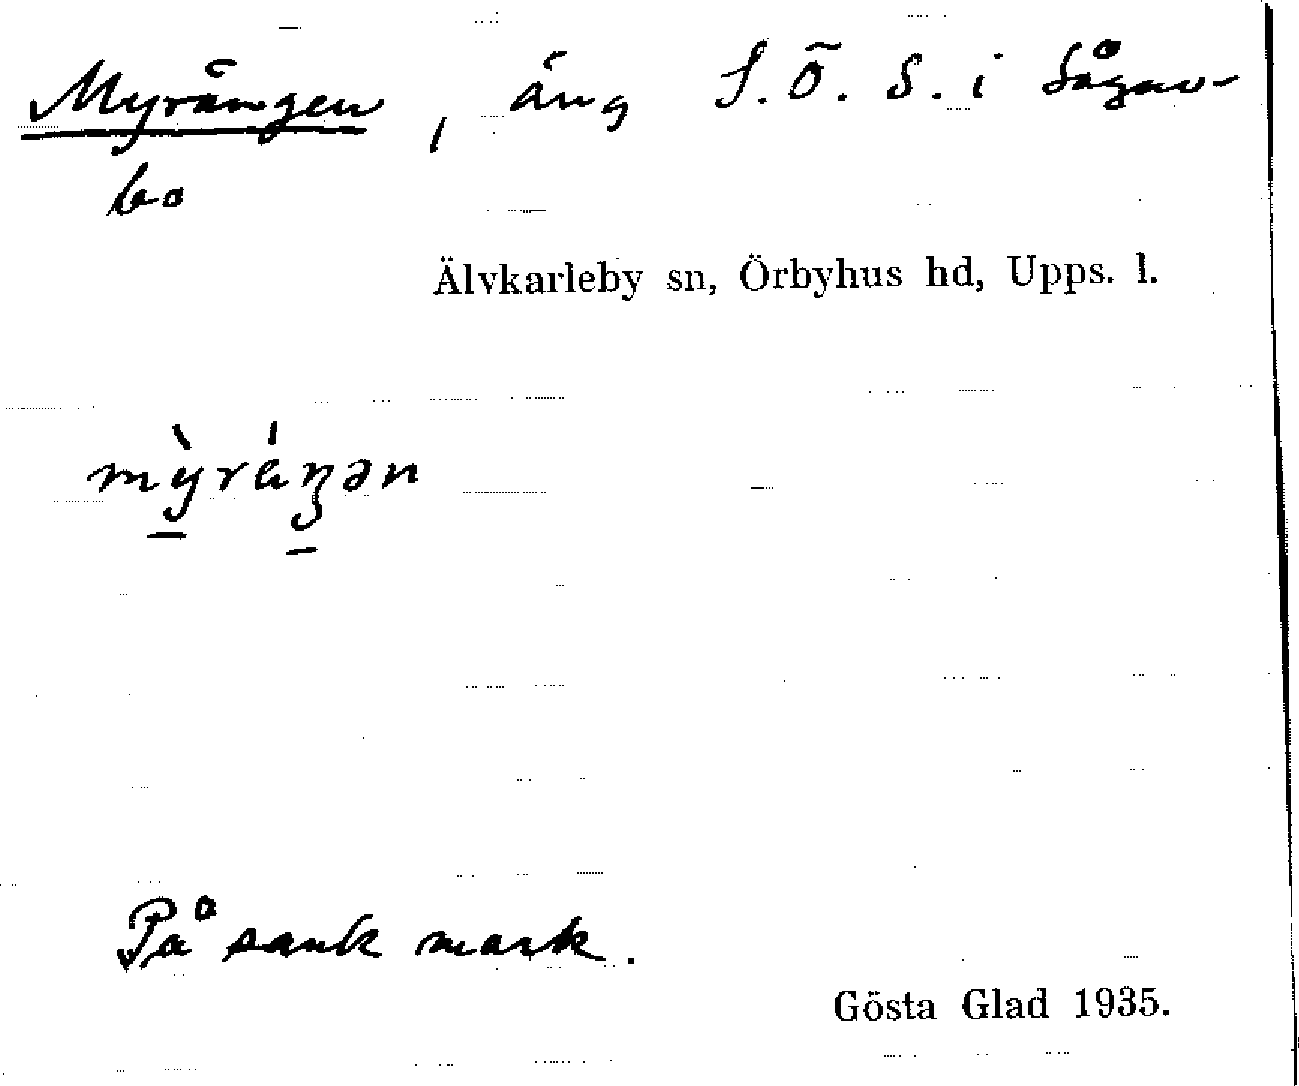 Myrängen, äng S. Ö. S. i Sågar-
bo
Älvkarleby sn, Örbyhus hd, Upps. l.
mỳräŋən
På sank mark.
Gösta Glad 1935.